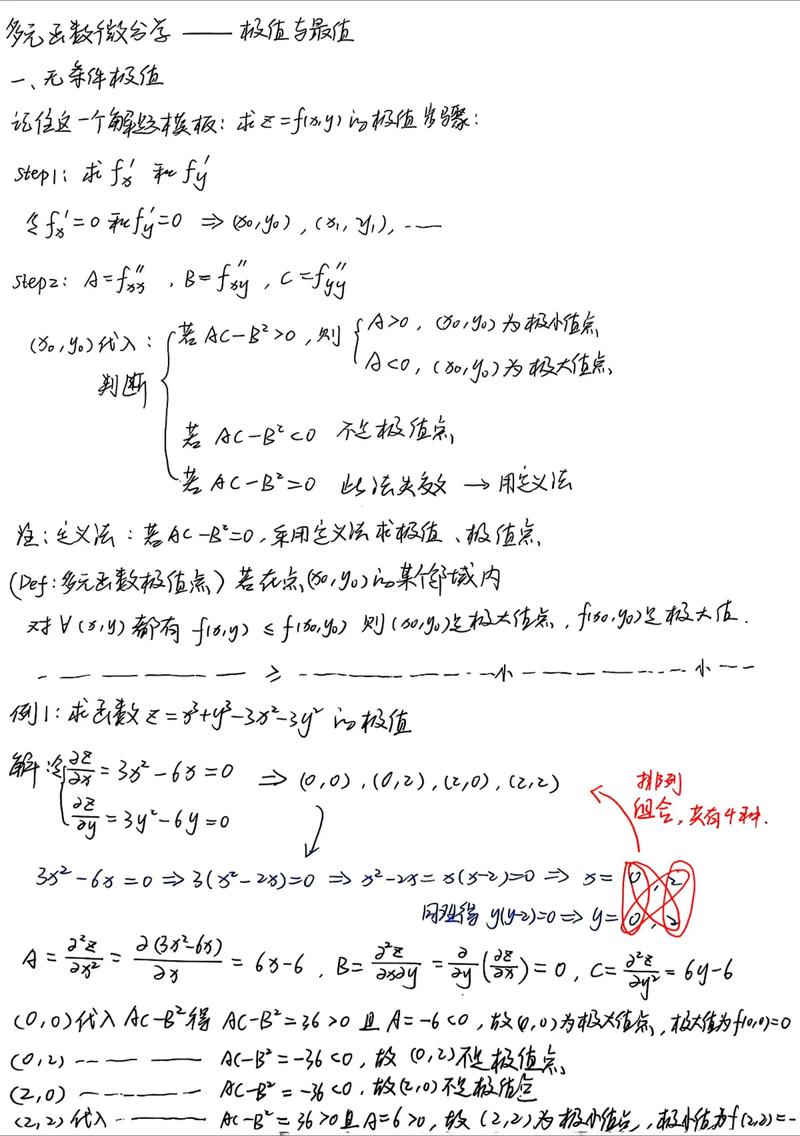 多元函数微分学 —— 极值与最值
一、无条件极值
记住这一个解题模板：求z=f(x,y)的极值步骤：
step1：求fx′ 和 fy′
令fx′=0和fy′=0 ⇒ (x0,y0), (x1,y1), ……
step2：A=fxx″, B=fxy″, C=fyy″
(x0,y0)代入：判断
若AC-B²>0, 则
A>0, (x0,y0)为极小值点
A<0, (x0,y0)为极大值点
若 AC-B²<0 不是极值点
若 AC-B²=0 此法失效 → 用定义法
注：定义法：若AC-B²=0, 采用定义法求极值、极值点
(Def：多元函数极值点) 若在点(x0,y0)的某个邻域内
对∀(x,y)都有 f(x,y) ≤ f(x0,y0) 则(x0,y0)是极大值点, f(x0,y0)是极大值.
—————— ≥ ——————小——————小——
例1：求函数z=x³+y³-3x²-3y² 的极值
解：令 ∂z/∂x=3x²-6x=0 ⇒ (0,0), (0,2), (2,0), (2,2)
∂z/∂y=3y²-6y=0
排列
组合, 共有4种.
3x²-6x=0 ⇒ 3(x²-2x)=0 ⇒ x²-2x=x(x-2)=0 ⇒ x= 0, 2
同理得 y(y-2)=0 ⇒ y= 0, 2
A=∂²z/∂x²=∂(3x²-6x)/∂x=6x-6, B=∂²z/∂x∂y=∂/∂y(∂z/∂x)=0, C=∂²z/∂y²=6y-6
(0,0)代入AC-B²得 AC-B²=36>0 且 A=-6<0, 故(0,0)为极大值点, 极大值为f(0,0)=0
(0,2) ———— AC-B²=-36<0, 故 (0,2)不是极值点
(2,0) ———— AC-B²=-36<0, 故(2,0)不是极值点
(2,2)代入———— AC-B²=36>0且A=6>0, 故 (2,2)为极小值点, 极小值为f(2,2)=-